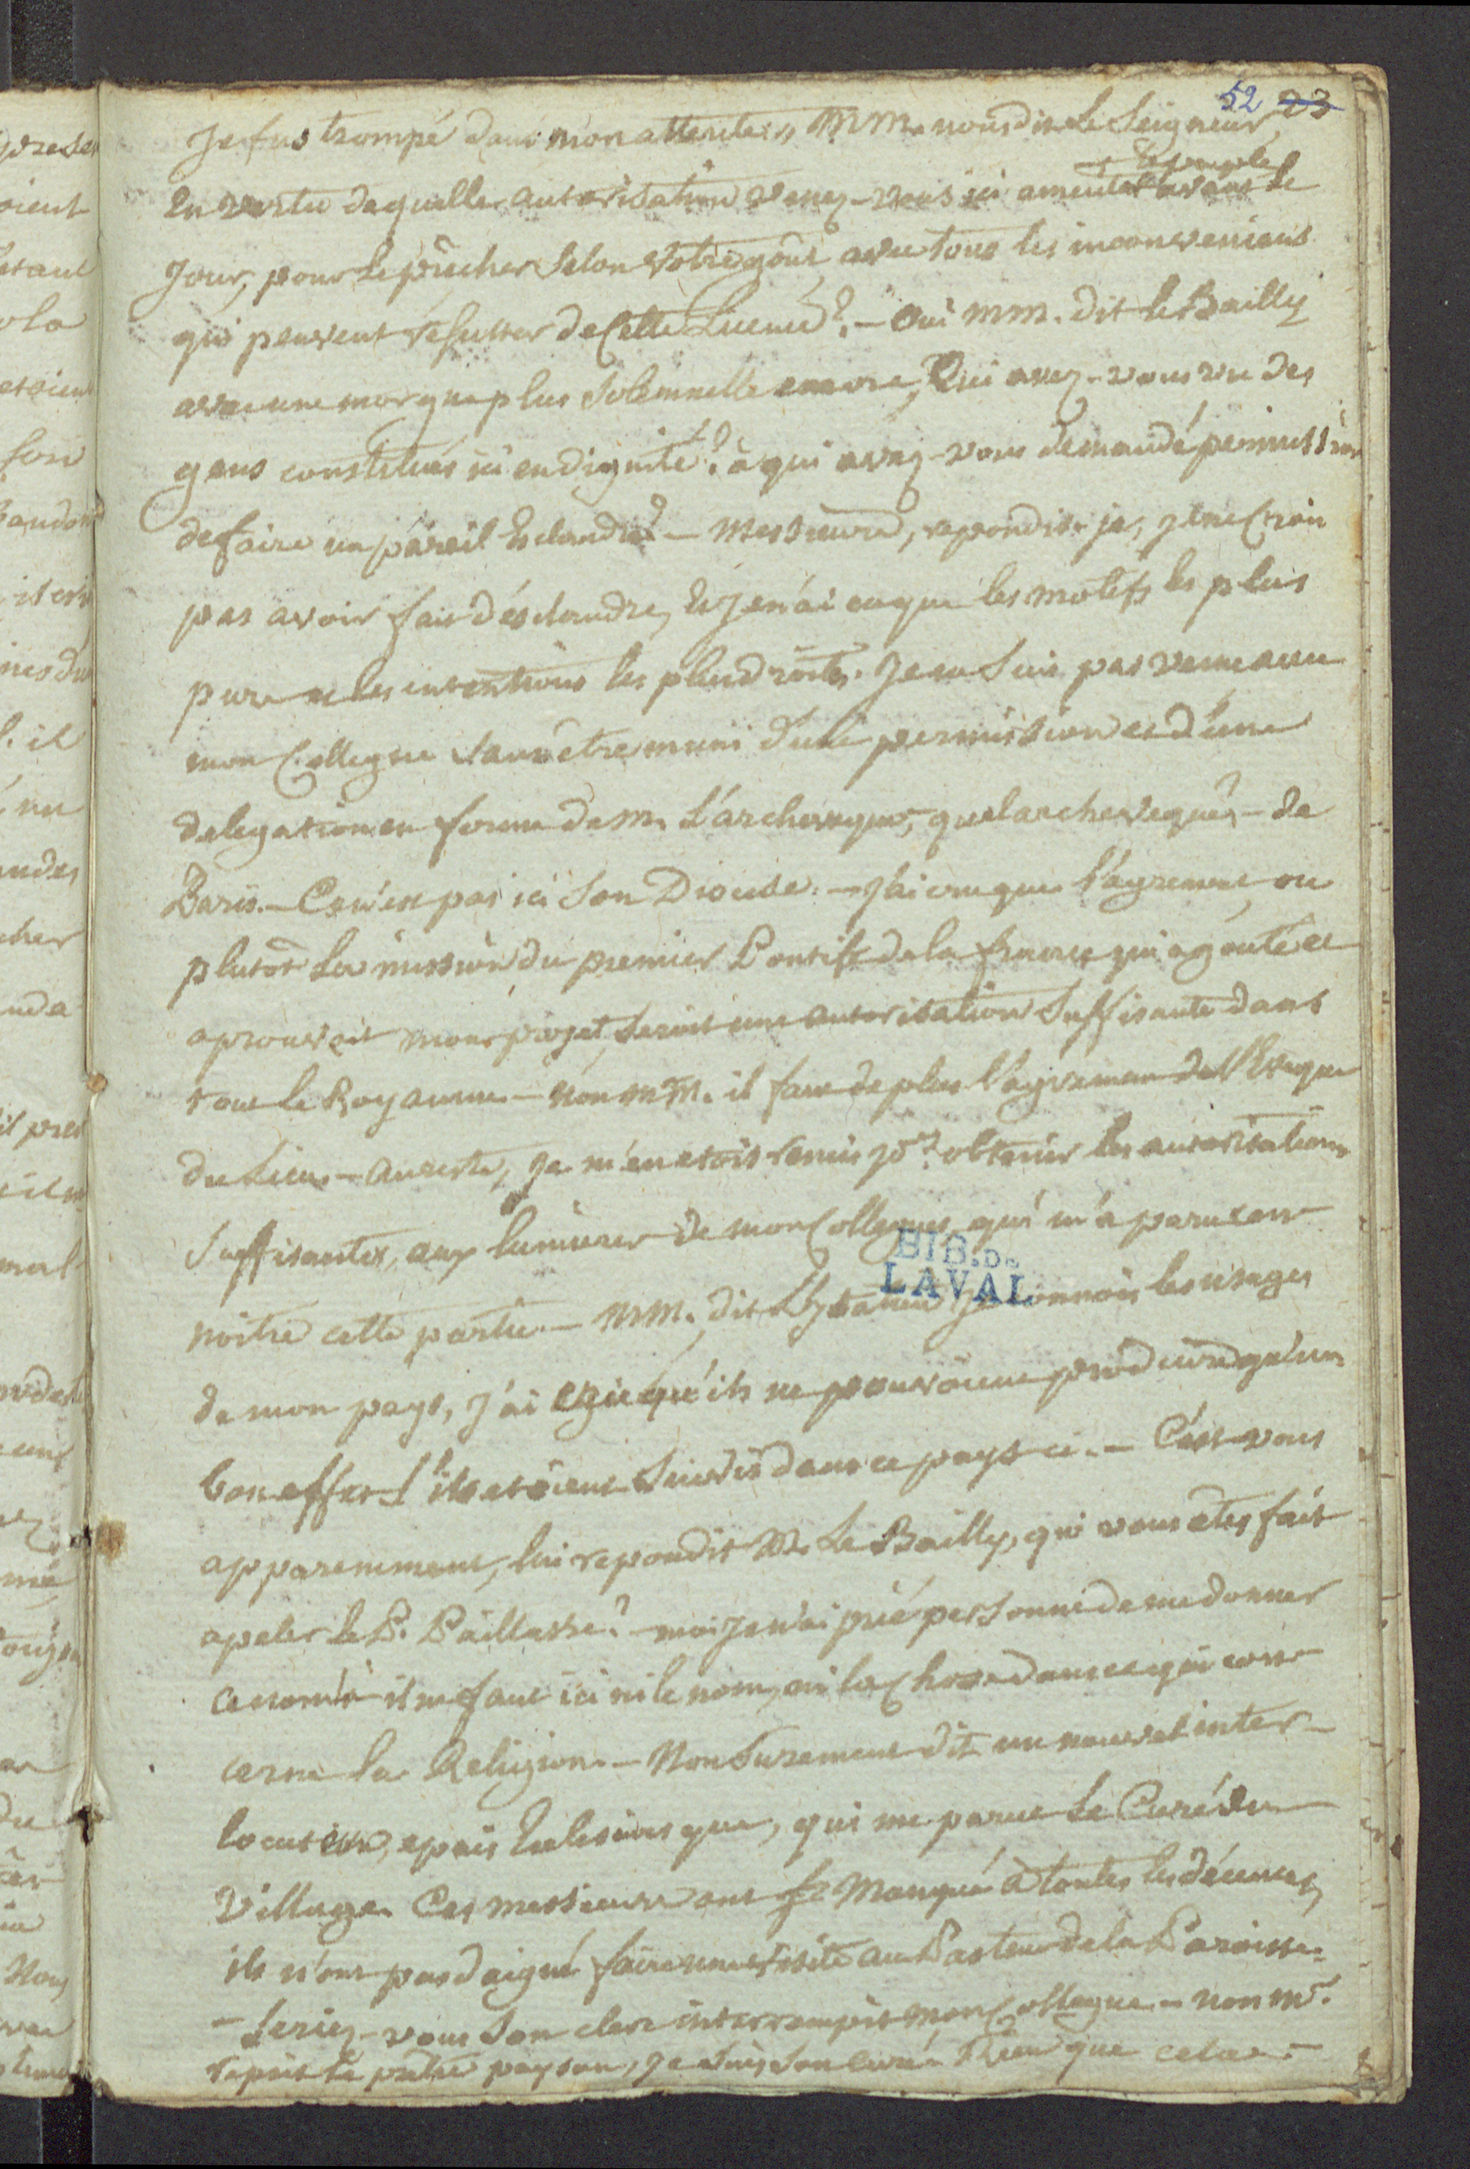 52 23
Je fus trompé dans mon attente. MM. nous dit le Seigneur,
le peuple
En vertu de quelle autorisation venez-vous ici ameuter avant le
jour, pour le prêcher selon votre goût avec tous les inconveniens
qui peuvent résulter de cette licence? - Oui MM. dit le Bailly
avec une morgue plus solemnelle encore, Qui avez-vous vu des
gens constitués ici en dignité? à qui avez-vous demandé permission
de faire un pareil Esclandre? - Messieurs, repondis-je, je ne crois
pas avoir fait d'ésclandre, et je n'ai eu que les motifs les plus
purs et les intentions les plus droites. Je ne suis pas venu avec
mon Collegue sans être muni d'une permission et d'une
delegation en forme de M. L'archeveque, quel archeveque? - de
Paris. - Ce n'est pas ici son Diocèse. - J'ai cru que l'agrement, ou
plutôt la mission du premier Pontife de la france qui a gouté et
aprouvoit mon projet, seroit une autorisation suffisante dans
tout le Royaume. - Non MM. il faut de plus l'agrement de l'Eveque
du Lieu. - au reste, je m'en etois remis pr. obtenir les autorisations
suffisantes, aux lumieres de mon Collegue, qui m'a paru con-
BIB. DE
LAVAL
noitre cette partie. - MM., dit je connois les usages
de mon pays, j'ai cru qu'ils ne pouvoient produire qu'un
bon effet s'ils etoient suivis dans ce pays ci. - C'est vous
apparemment, lui repondit M. Le Bailly, qui vous etes fait
apeler le P. Paillasse? - moi je n'ai prié personne de me donner
ce nom. - il ne faut ici ni le nom, ni la chose dans ce qui con-
cerne la Religion. - Non surement dit un nouvel inter-
locuteur, epais Eclesiastique, qui me parut le Curé du
Village. Ces messieurs ont manqué à toutes les décences,
ils n'ont pas daigné faire une visite au Pasteur de la Paroisse.
- Seriez-vous son clerc interrompit mon Collegue. - non mr.
reprit le prêtre paysan, je suis son curé. Rien que cela. -